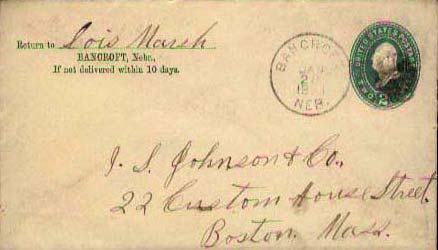 Return to Lois Marsh
BANCROFT, Nebr.,
If not delivered within 10 days.
BANCROFT
NEB.
UNITED STATES POSTAGE
J. S. Johnson & Co.,
22 Custom House Street.
Boston. Mass.